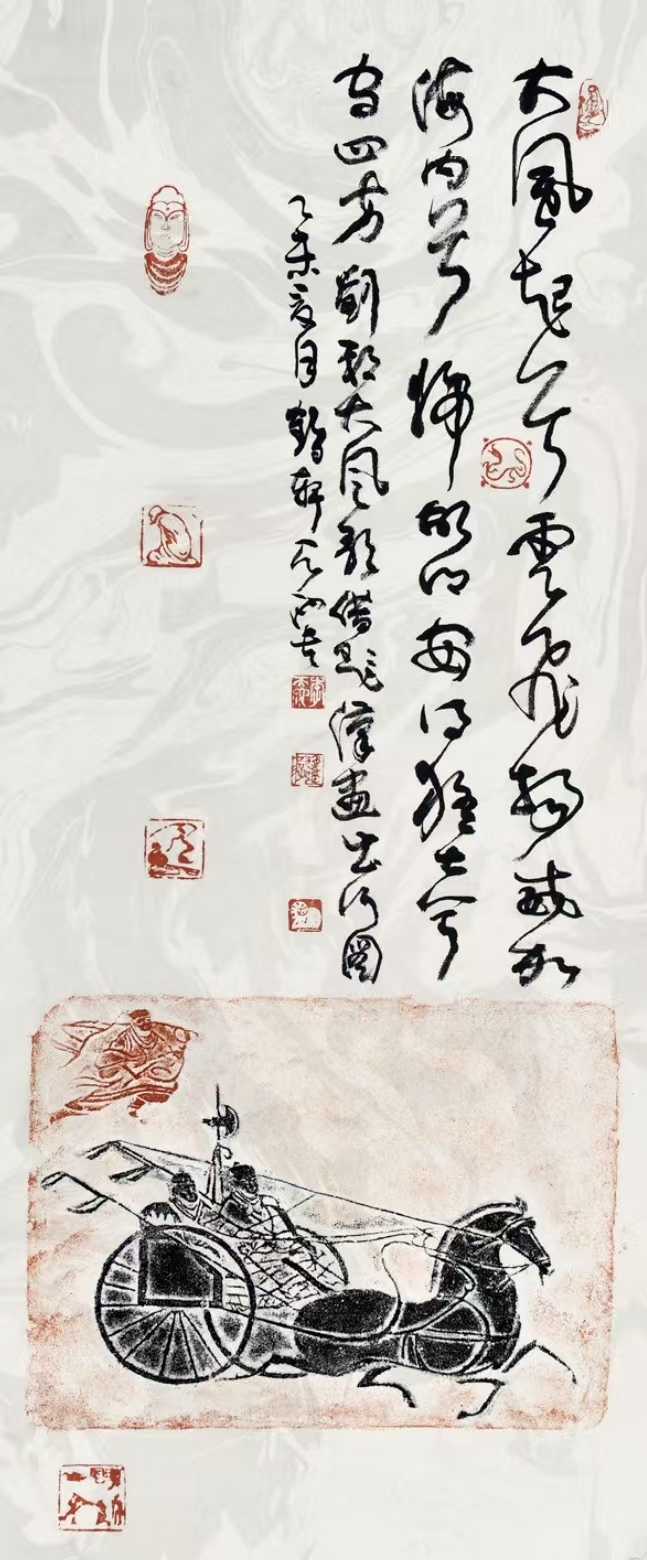 大風起兮雲飛揚威加
海内兮歸故鄉安得猛士兮
守四方劉邦大風歌借題漢畫出行圖
乙未夏月鶴軒